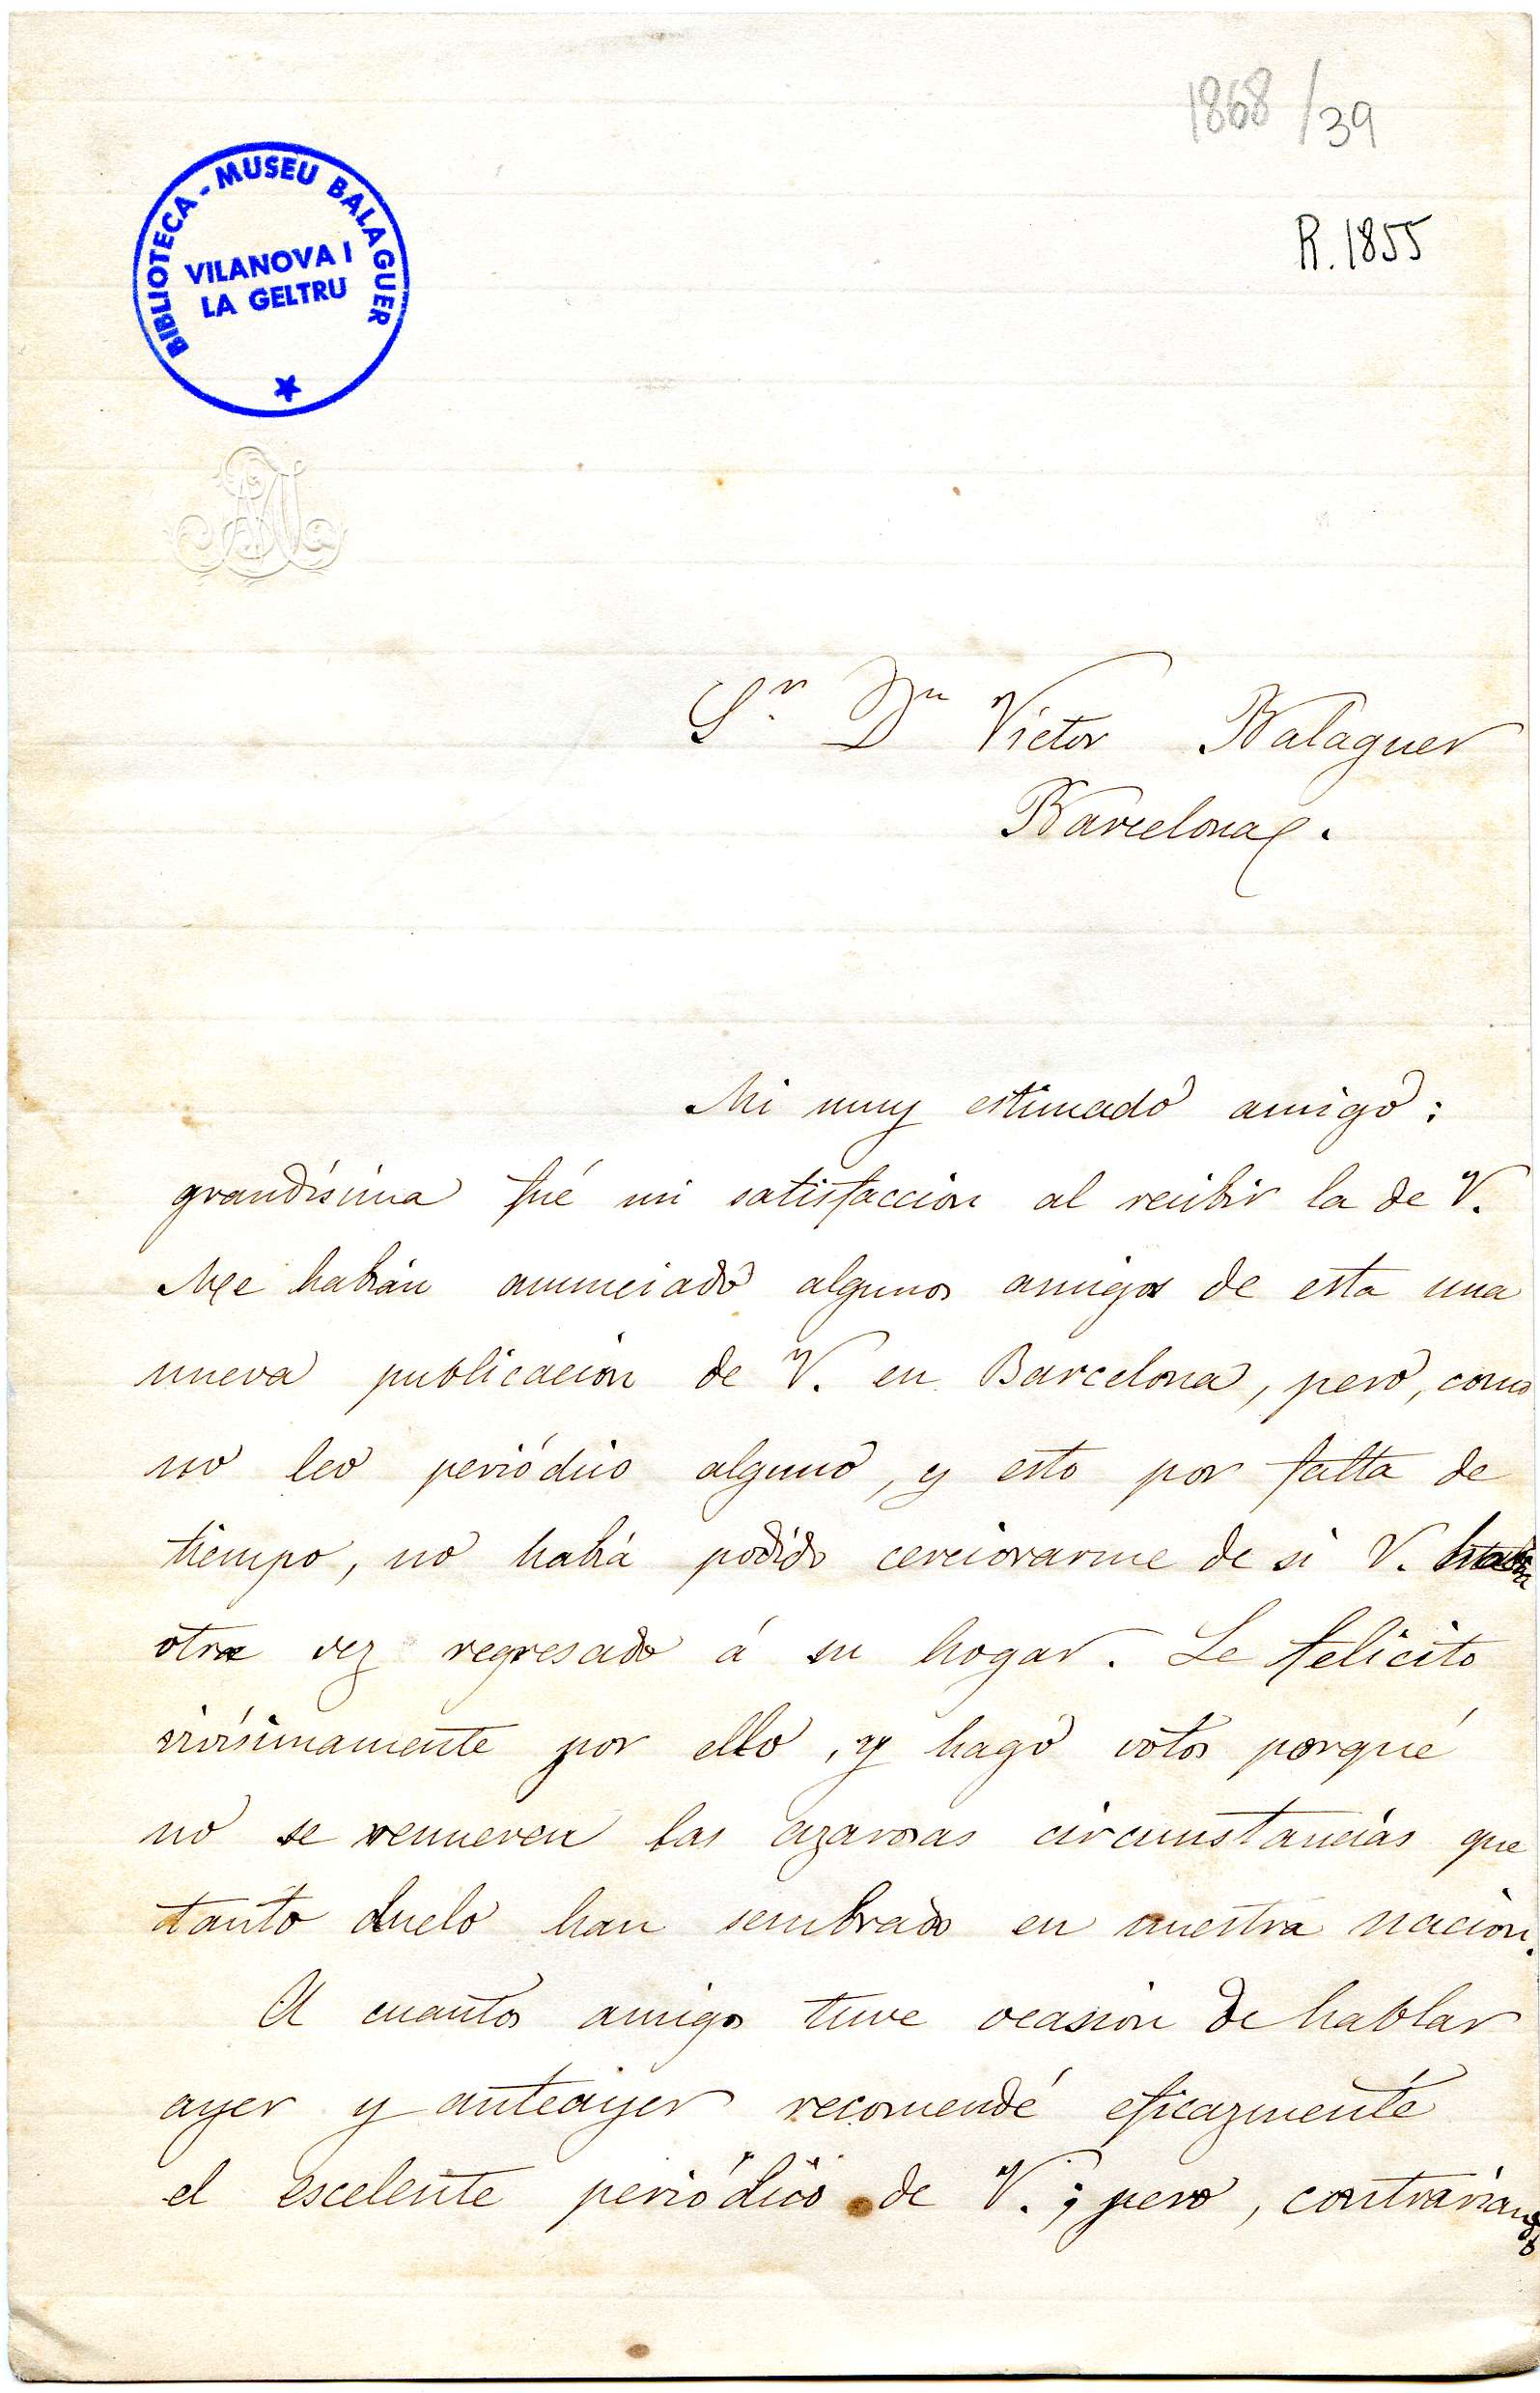 1868/39
R.1855
BIBLIOTECA - MUSEU BALAGUER
VILANOVA I
LA GELTRU
Sr. Dn Victor Balaguer
Barcelona.
Mi muy estimado amigo:
grandísima fué mi satisfaccion al recibir la de V.
Me habián anunciado algunos amigos de esta una
nueva publicacion de V. en Barcelona, pero, como
no leo periódico alguno, y esto por falta de
tiempo, no habiá podido cerciorarme de si V. habia
otra vez regresado á su hogar. Le felicito
vivísimamente por ello, y hago votos porqué
no se renueven las azarosas circunstancias que
tanto duelo han sembrado en nuestra nacion.
A cuantos amigos tuve ocasion de hablar
ayer y anteayer recomendé eficazmente
el escelente periódico de V.; pero, contrariando